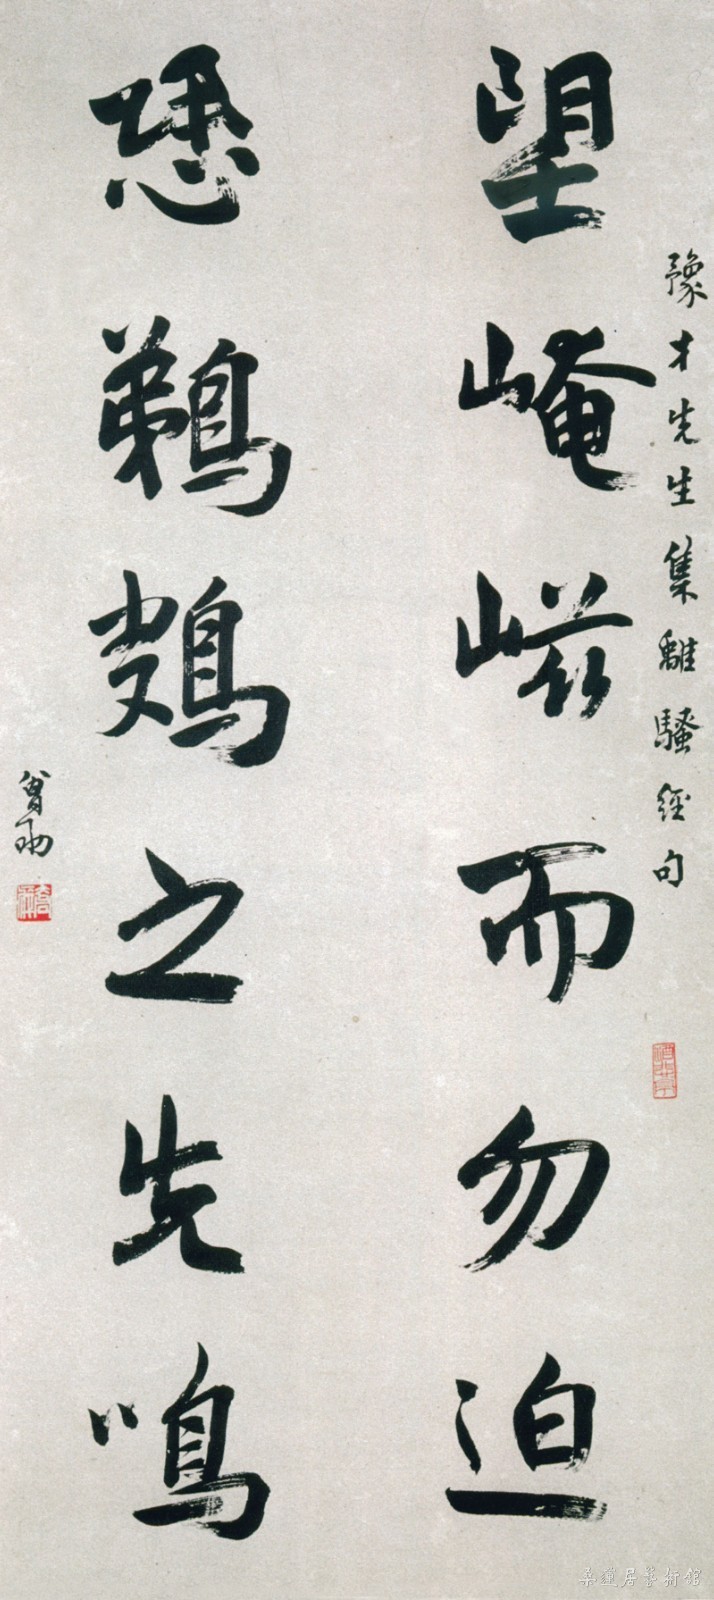 豫才先生集離騷經句
望崦嵫而勿迫
恐鵜鴂之先鳴
曾劬
桑蓮居藝術館